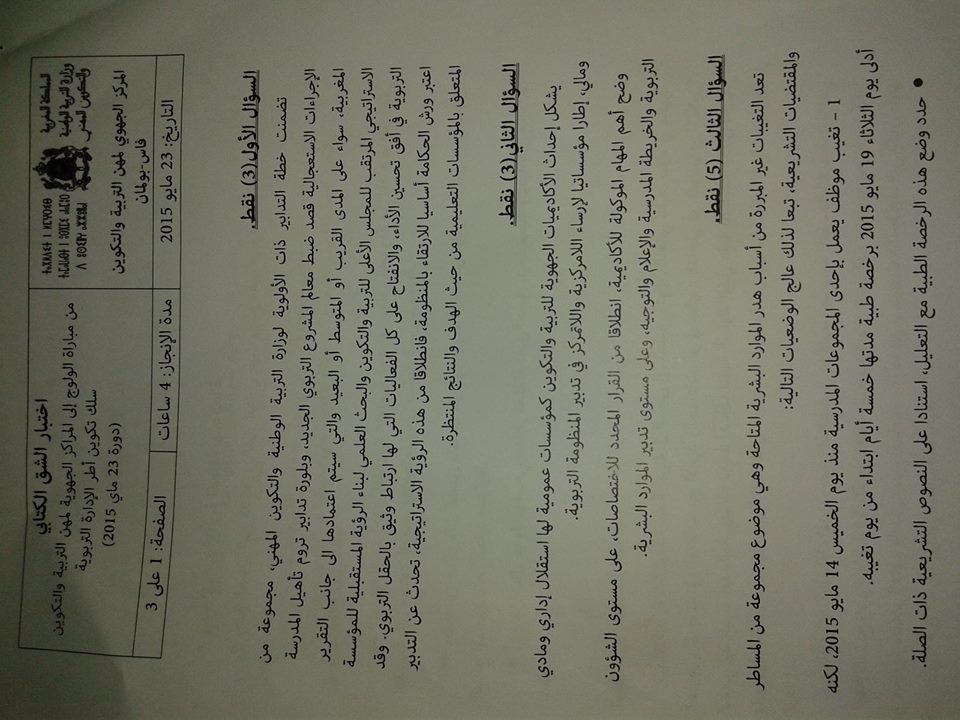 المملكة المغربية
وزارة التربية الوطنية
والتكوين المهني
ⵜⴰⴳⵍⴷⵉⵜ ⵏ ⵍⵎⵖⵔⵉⴱ
المركز الجهوي لمهن التربية والتكوين
فاس-بولمان
التاريخ: 23 مايو 2015
اختبار الشق الكتابي
من مباراة الولوج إلى المراكز الجهوية لمهن التربية والتكوين
سلك تكوين أطر الإدارة التربوية
(دورة 23 ماي 2015)
مدة الإنجاز: 4 ساعات
الصفحة: 1 على 3
السؤال الأول(3) نقط.
تضمنت خطة التدابير ذات الأولوية لوزارة التربية الوطنية والتكوين المهني، مجموعة من
الإجراءات الاستعجالية قصد ضبط معالم المشروع التربوي الجديد، وبلورة تدابير تروم تأهيل المدرسة
المغربية، سواء على المدى القريب أو المتوسط أو البعيد والتي سيتم اعتمادها الى جانب التقرير
الاستراتيجي المرتقب للمجلس الأعلى للتربية والتكوين والبحث العلمي لبناء الرؤية المستقبلية للمؤسسة
التربوية في أفق تحسين الأداء، والانفتاح على كل الفعاليات التي لها ارتباط وثيق بالحقل التربوي. وقد
اعتبر ورش الحكامة أساسيا للارتقاء بالمنظومة، فانطلاقا من هذه الرؤية الاستراتيجية، تحدث عن التدبير
المتعلق بالمؤسسات التعليمية من حيث الهدف والنتائج المنتظرة.
السؤال الثاني(3) نقط.
يشكل إحداث الأكاديميات الجهوية للتربية والتكوين كمؤسسات عمومية لها استقلال إداري ومادي
ومالي، إطارا مؤسساتيا لإرساء اللامركزية واللاتمركز في تدبير المنظومة التربوية.
وضح أهم المهام الموكولة للأكاديمية، انطلاقا من القرار المحدد للاختصاصات، على مستوى الشؤون
التربوية والخريطة المدرسية والإعلام والتوجيه، وعلى مستوى تدبير الموارد البشرية.
السؤال الثالث (5) نقط.
تعد التغيبات غير المبررة من أسباب هدر الموارد البشرية المتاحة وهي موضوع مجموعة من المساطر
والمقتضيات التشريعية، تبعا لذلك عالج الوضعيات التالية:
1 – تغيب موظف يعمل بإحدى المجموعات المدرسية منذ يوم الخميس 14 مايو 2015، لكنه
أدلى يوم الثلاثاء 19 مايو 2015 برخصة طبية مدتها خمسة أيام ابتداء من يوم تغيبه.
• حدد وضع هذه الرخصة الطبية مع التعليل، استنادا على النصوص التشريعية ذات الصلة.